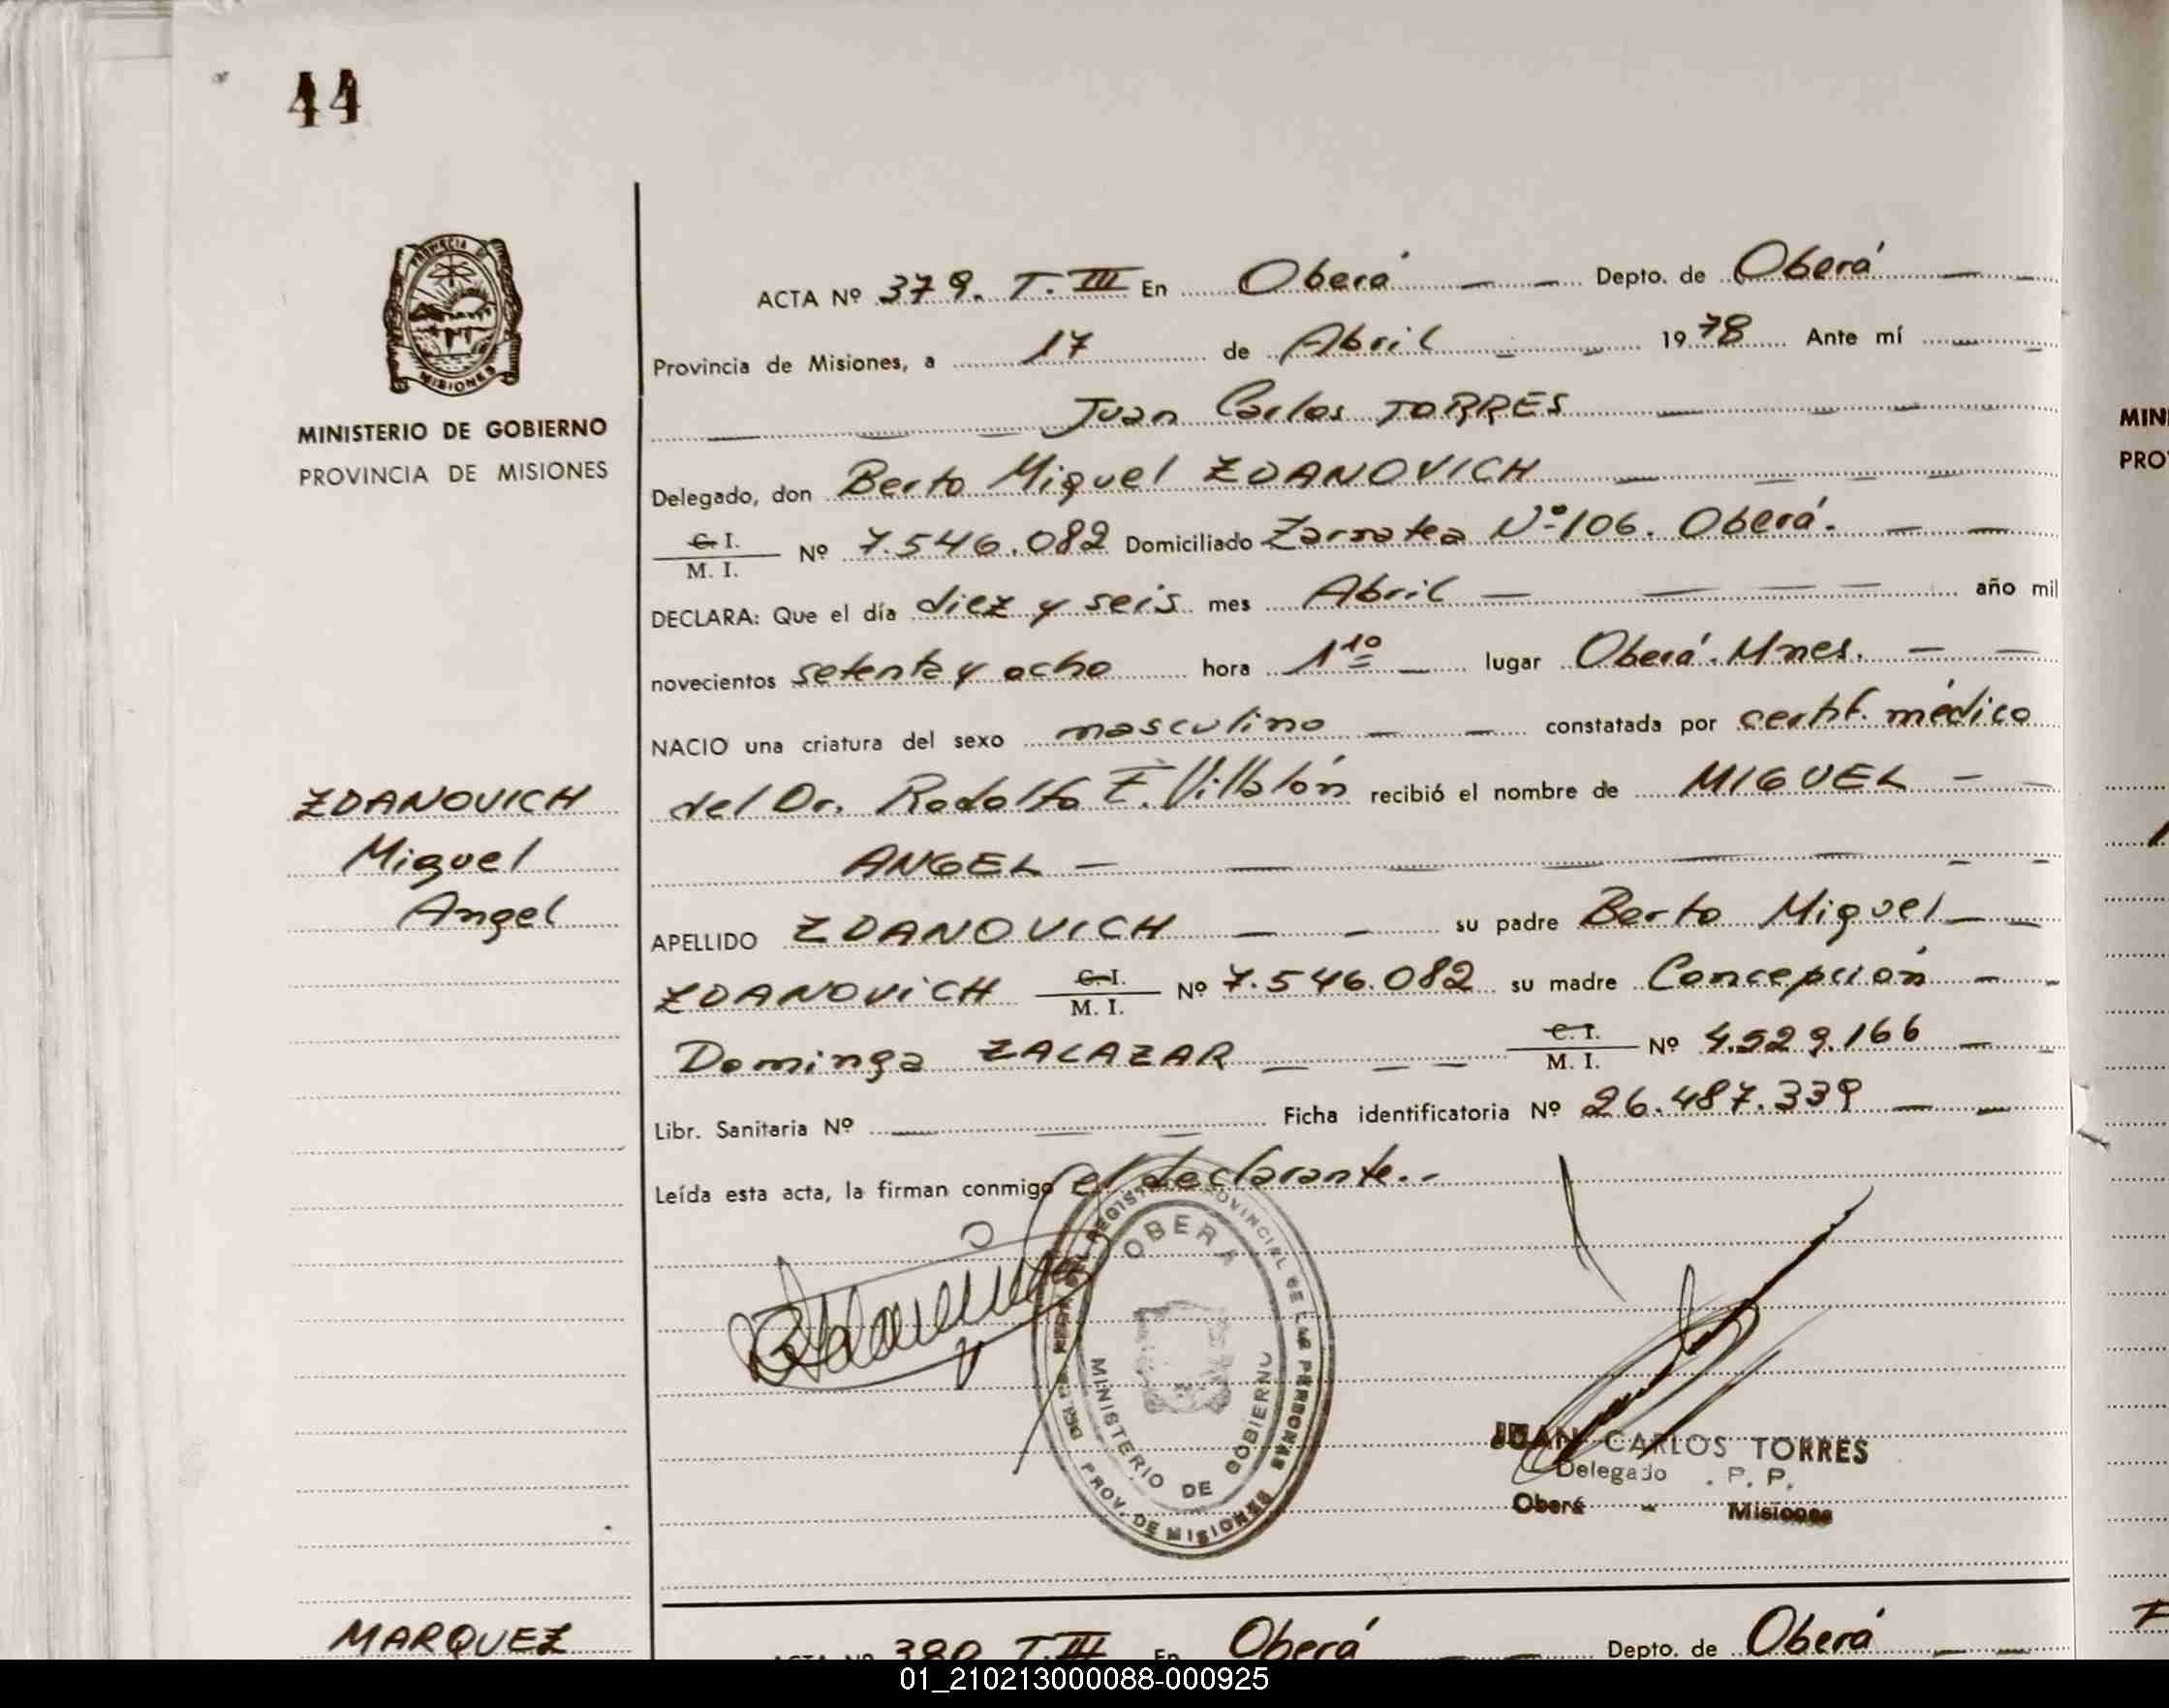 44
PROVINCIA DE
MISIONES
MINISTERIO DE GOBIERNO
PROVINCIA DE MISIONES
ACTA Nº 379. T. III En Oberá — — Depto. de Oberá — —
Provincia de Misiones, a 17 de Abril — — 1978 Ante mí — —
— — — Juan Carlos TORRES — — —
Delegado, don Berto Miguel ZDANOVICH — — — —
C. I.
M. I. Nº 7.546.082 Domiciliado Zarratea Nº 106. Oberá. — —
DECLARA: Que el día diez y seis mes Abril — — — — año mil
novecientos setenta y ocho hora 11º — lugar Oberá. Mnes. — —
NACIO una criatura del sexo masculino — — constatada por certif. médico
del Dr. Rodolfo E. Villalón recibió el nombre de MIGUEL — —
ANGEL — — — — — — — —
APELLIDO ZDANOVICH — — su padre Berto Miguel — —
ZDANOVICH C. I.
M. I. Nº 7.546.082 su madre Concepción — —
Dominga ZALAZAR — — — C. I.
M. I. Nº 4.929.166 — —
Libr. Sanitaria Nº — — — Ficha identificatoria Nº 26.487.339 — —
Leída esta acta, la firman conmigo el declarante.-
ZDANOVICH
Miguel
Angel
OBERA
MINISTERIO DE GOBIERNO
REGISTRO PROVINCIAL DE LAS PERSONAS
PROV. DE MISIONES
JUAN CARLOS TORRES
Delegado . P. P.
Oberá - Misiones
MARQUEZ
ACTA Nº 380 T. III En Oberá — — Depto. de Oberá — —
MINI
PRO
01_210213000088-000925